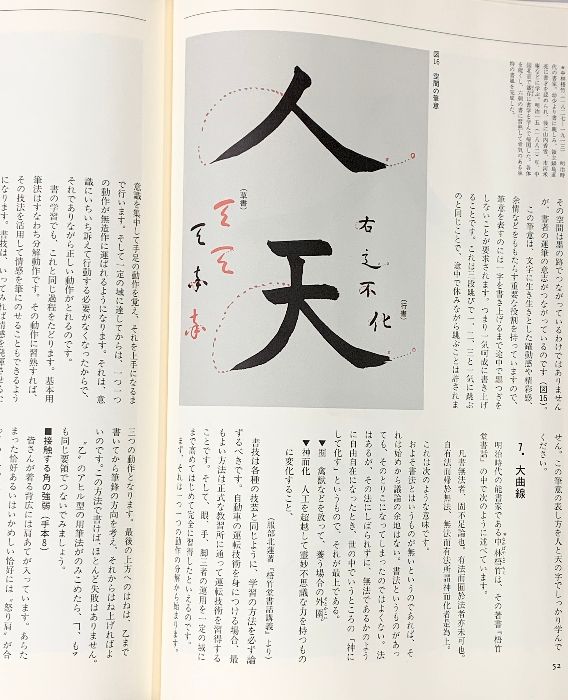 その空間は墨の跡でつながっているわけではありません
が、書者の運筆の意志がつながっているのです（図15）。
この筆意は、文字に生き生きとした躍動感や精彩感、
余情などをももたらす重要な役割を持っていますので、
筆意を表すのには一字を書き上げるまで途中で墨つぎを
しないことが要求されます。つまり一気呵成に書き上げ
るわけです。これは三段跳びで一、二、三と一気に跳ぶ
のと同じことで、途中で休みながら跳ぶことは許されま
図16　空間の筆意
人
天
（行書）
右之不化
（草書）
せん。この筆意の表し方を人と天の字でしっかり学んで
ください。
7. 大曲線
明治時代の能書家である中林梧竹は、その著書『梧竹
堂書話』の中で次のように述べています。
凡書無法者、固不足論也。有法而囿於法者亦未可也。
自有法而帰於無法、無法而有法所謂神而化者是為上。
これは次のような意味です。
およそ書法というものが無いというのであれば、そ
れは始めから議論の余地はない。書法というものがあっ
ても、そのとりこになってしまったのではよくない。法
はあるが、その法にしばられずに、無法であるかのよう
に自由自在になったとき、世の中でいうところの『神に
して化す』というもので、それが最上である。
▼囿　禽獣などを放って、養う場合の外囲。
▼神而化　人工を超越して霊妙不思議な力を持つもの
に変化すること。
（服部北蓮著『梧竹堂書話講義』より）
書技は各種の技芸と同じように、学習の方法を必ず論
ずるべきです。自動車の運転技術を身につける場合、最
もよい方法は正式な教習所に通って運転技術を習得する
ことです。そして、眼、手、脚三者の運用を一定の域に
まで高めてはじめて完全に習得したといえるのです。
ます。それは一つ一つの動作の分解から始まります。
52
意識を集中して手足の動作を覚え、それを上手になるま
で行います。そして一定の域に達してからは、一つ一つ
の動作が無造作に運ばれるようになります。それは、意
識にいちいち訴えて行動する必要がなくなったからで、
それでありながら正しい動作がとれるのです。
書の学習でも、これと同じ過程をたどります。基本用
筆法はすなわち分解動作です。その動作に習熟すれば、
その技法を活用して情感を筆にのせることもできるよう
になります。書技は、いってみれば情感を発揮させるた
三つの動作となります。最後の上方へのはねは、乙まで
書いてから筆鋒の方向を考え、それからはね上げればよ
いのです。この方法で書けば、ほとんど失敗はありません。
“乙”のアヒル型の用筆法がのみこめたら、
も同じ要領でつないでみましょう。
■接触する角の強弱（手本8）
皆さんが着る背広には肩あてが入っています。あらた
まった恰好あるいはいかめしい恰好には“怒り肩”が合